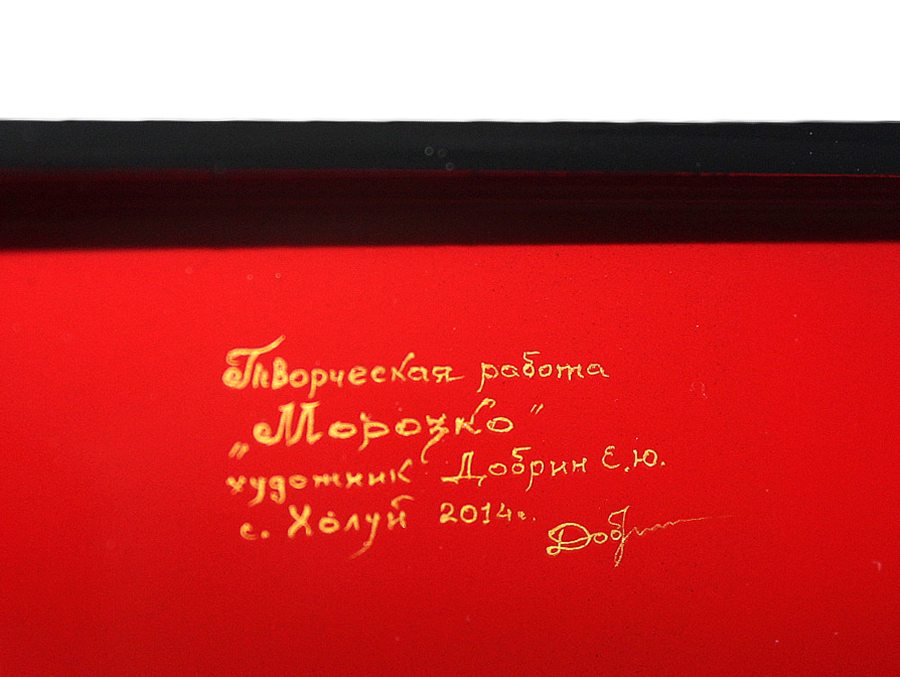 Творческая работа
„Морозко"
художник Добрин Е.Ю.
с. Холуй 2014г.
Добрин